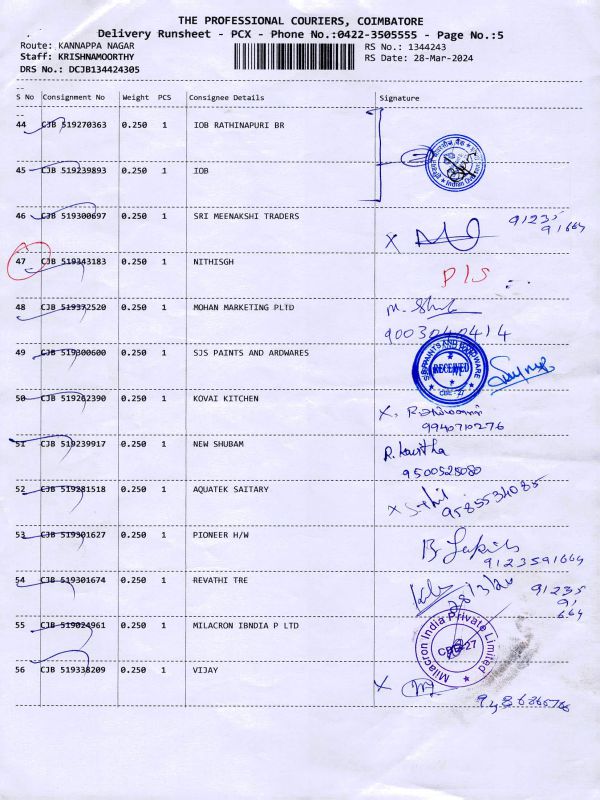 THE PROFESSIONAL COURIERS, COIMBATORE
Delivery Runsheet - PCX - Phone No.:0422-3505555 - Page No.:5
Route: KANNAPPA NAGAR RS No.: 1344243
Staff: KRISHNAMOORTHY RS Date: 28-Mar-2024
DRS No.: DCJB134424305
S No Consignment No Weight PCS Consignee Details Signature
44 CJB 519270363 0.250 1 IOB RATHINAPURI BR
45 CJB 519239893 0.250 1 IOB
46 CJB 519300697 0.250 1 SRI MEENAKSHI TRADERS 91235
91664
47 CJB 519343183 0.250 1 NITHISGH D/S
48 CJB 519372520 0.250 1 MOHAN MARKETING PLTD
9003040414
49 CJB 519300600 0.250 1 SJS PAINTS AND ARDWARES RECEIVED
CBE - 27
50 CJB 519262390 0.250 1 KOVAI KITCHEN
9940710276
51 CJB 519239917 0.250 1 NEW SHUBAM R. Kavitha
9500528080
52 CJB 519281518 0.250 1 AQUATEK SAITARY 9585534085
53 CJB 519301627 0.250 1 PIONEER H/W
9123591664
54 CJB 519301674 0.250 1 REVATHI TRE 28/3/24 91235
91
664
55 CJB 519024961 0.250 1 MILACRON IBNDIA P LTD Milacron India Private Limited
CBE-27
56 CJB 519338209 0.250 1 VIJAY